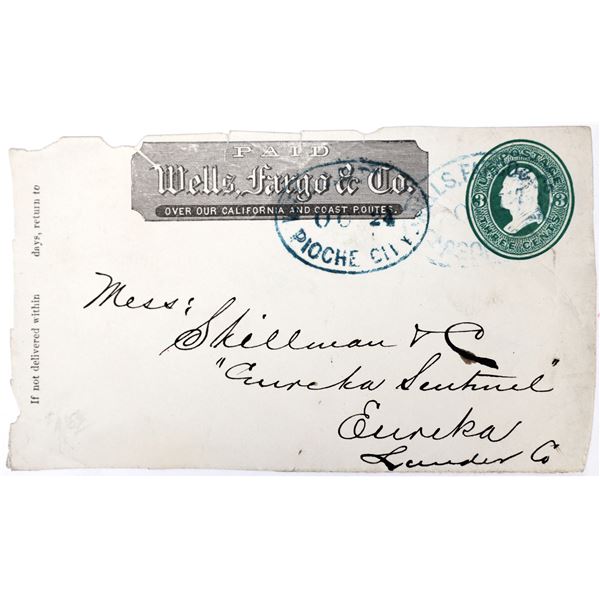 PAID
Wells, Fargo & Co.
OVER OUR CALIFORNIA AND COAST ROUTES.
OC 24
PIOCHE CITY
LS. F
U.S. POSTAGE
3 3
THREE CENTS
If not delivered within days, return to
Mess:
Skillman & C
"Eureka Sentinel"
Eureka
Lander Co